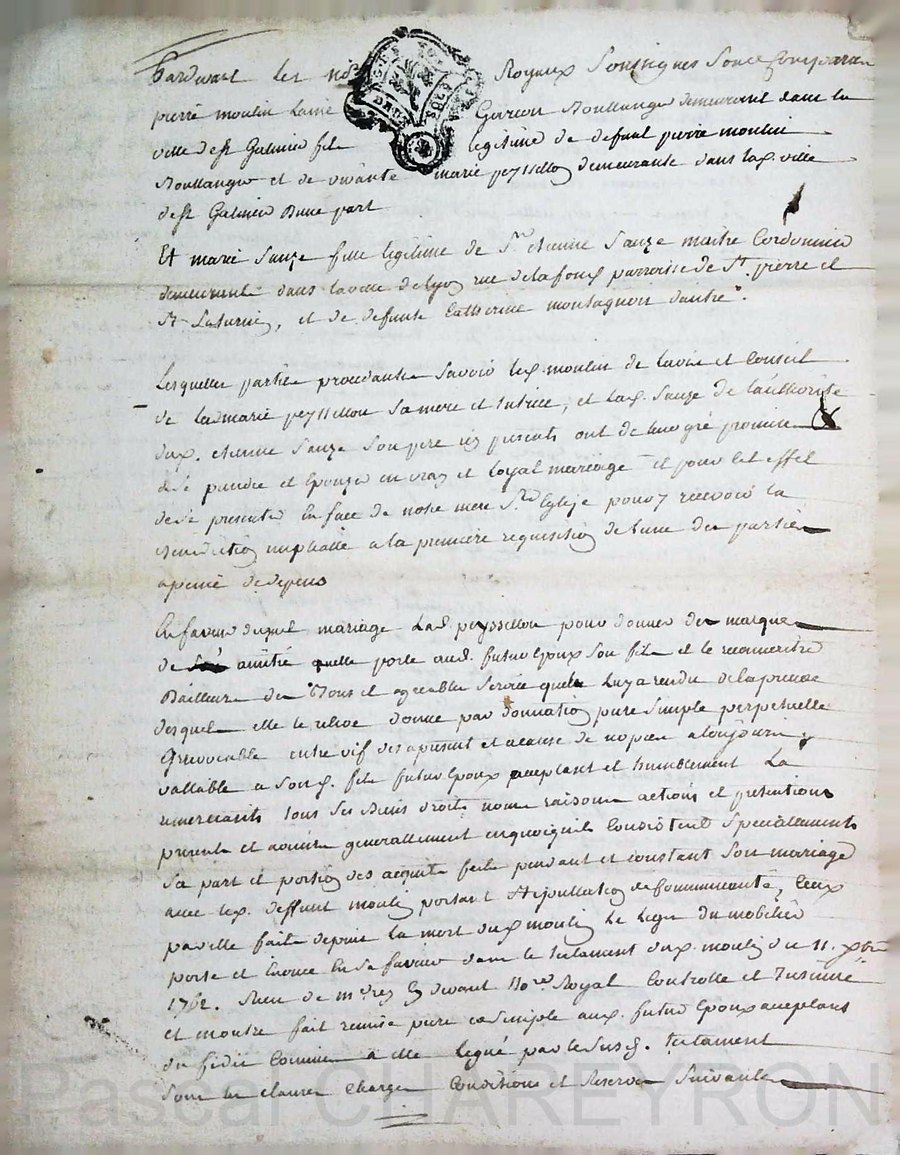 Pardevant les no.res Royaux soussignes sont comparu
pierre moulin Lainé Garcon Boullanger demeurant dans la
ville de st Galmier fils legitime de defunt pierre moulin
Boullanger et de vivante marie peyssellon demeurante dans lad. ville
de st Galmier d'une part
Et marie Sauze fille legitime de Sr. etienne Sauze maitre Cordonnier
demeurant dans la ville de Lyon rue de la parroisse de St. pierre et
St. Saturnin, et de defunte Catherine montagnon d'autre.
Lesquelles parties procedantes savoir led. moulin de lavis et Conseil
de lad. marie peyssellon sa mere et tutrice, et lad. Sauze de l'authorité
dud. etienne Sauze son pere icy presents ont de leur gré promis
de se prendre et Epouser en vray et loyal mariage et pour cet effet
de se presenter En face de notre mere Ste. Eglise pour y recevoir la
benediction nuptialle a la premiere requisition de l'une des parties
a peine de depens
En faveur duquel mariage Lad. peyssellon pour donner des marques
de amitié quelle porte aud. futur Epoux son fils et le
d'ailleurs des bons et agreables services quil luy a rendu de la preuve
desquels elle le releve donne par donnation pure simple perpetuelle
Irrevocable entre vifs des apresent et a cause de nopces a toujours
vallable a sond. fils futur Epoux acceptant et humblement La
remerciant tous ses biens droits noms raisons actions et pretentions
presents et avenir generallement en quoi qu'ils consistent speciallement
sa part et portion des acquits faits pendant et constant son mariage
avec led. deffunt moulin portant stipullation de communauté, Ceux
par elle faits depuis la mort dud. moulin Le Legs du mobilier
porté et Enoncé En sa faveur dans le testament dud. moulin du 11. xbre
1762. Reçu de me. rey En devant no.re Royal Controllé et Insinué
et moitié fait remise pure et simple aud. futur Epoux acceptant
du fidei Commis a elle legué par le susd. testament
Sous les clauses Charges Conditions et Reserves suivantes
Pascal CHAREYRON